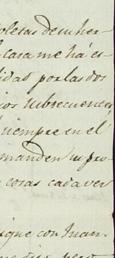 oletas de un her
casa me há es
lidad por las dos
ios subrecuencia
siempre en el
manden su pro
cosas cada ves
sigue con Juan.